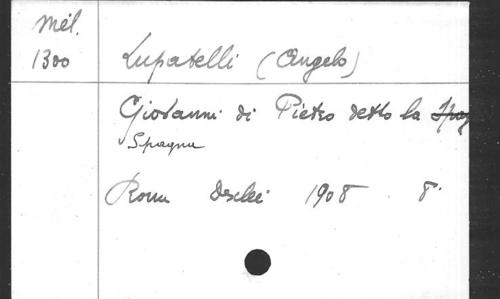 Mél.
1300
Lupatelli (Angelo)
Giovanni di Pietro detto la
Spagna
Roma Desclée 1908 8°